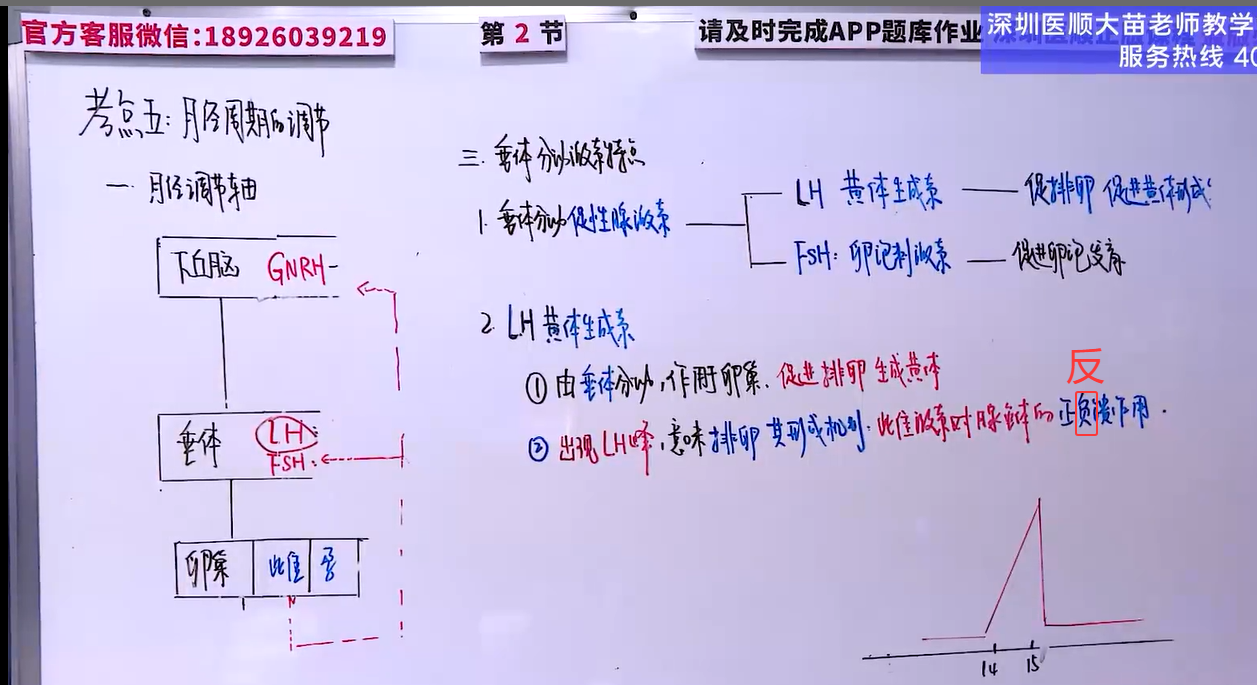 官方客服微信:18926039219
第 2 节
请及时完成APP题库作业
深圳医顺大苗老师教学
服务热线 40
考点五:月经周期的调节
一 月经调节轴
下丘脑 GNRH
垂体 LH
FSH
卵巢 雌 孕
三.垂体分泌激素特点
1.垂体分泌促性腺激素
LH 黄体生成素 促排卵 促进黄体形成
FSH:卵泡刺激素 促进卵泡发育
2 LH黄体生成素
①由垂体分泌,作用于卵巢.促进排卵 生成黄体
反
②出现LH峰,意味排卵 其形成机制:此雌激素对腺垂体的正负馈作用.
14 15